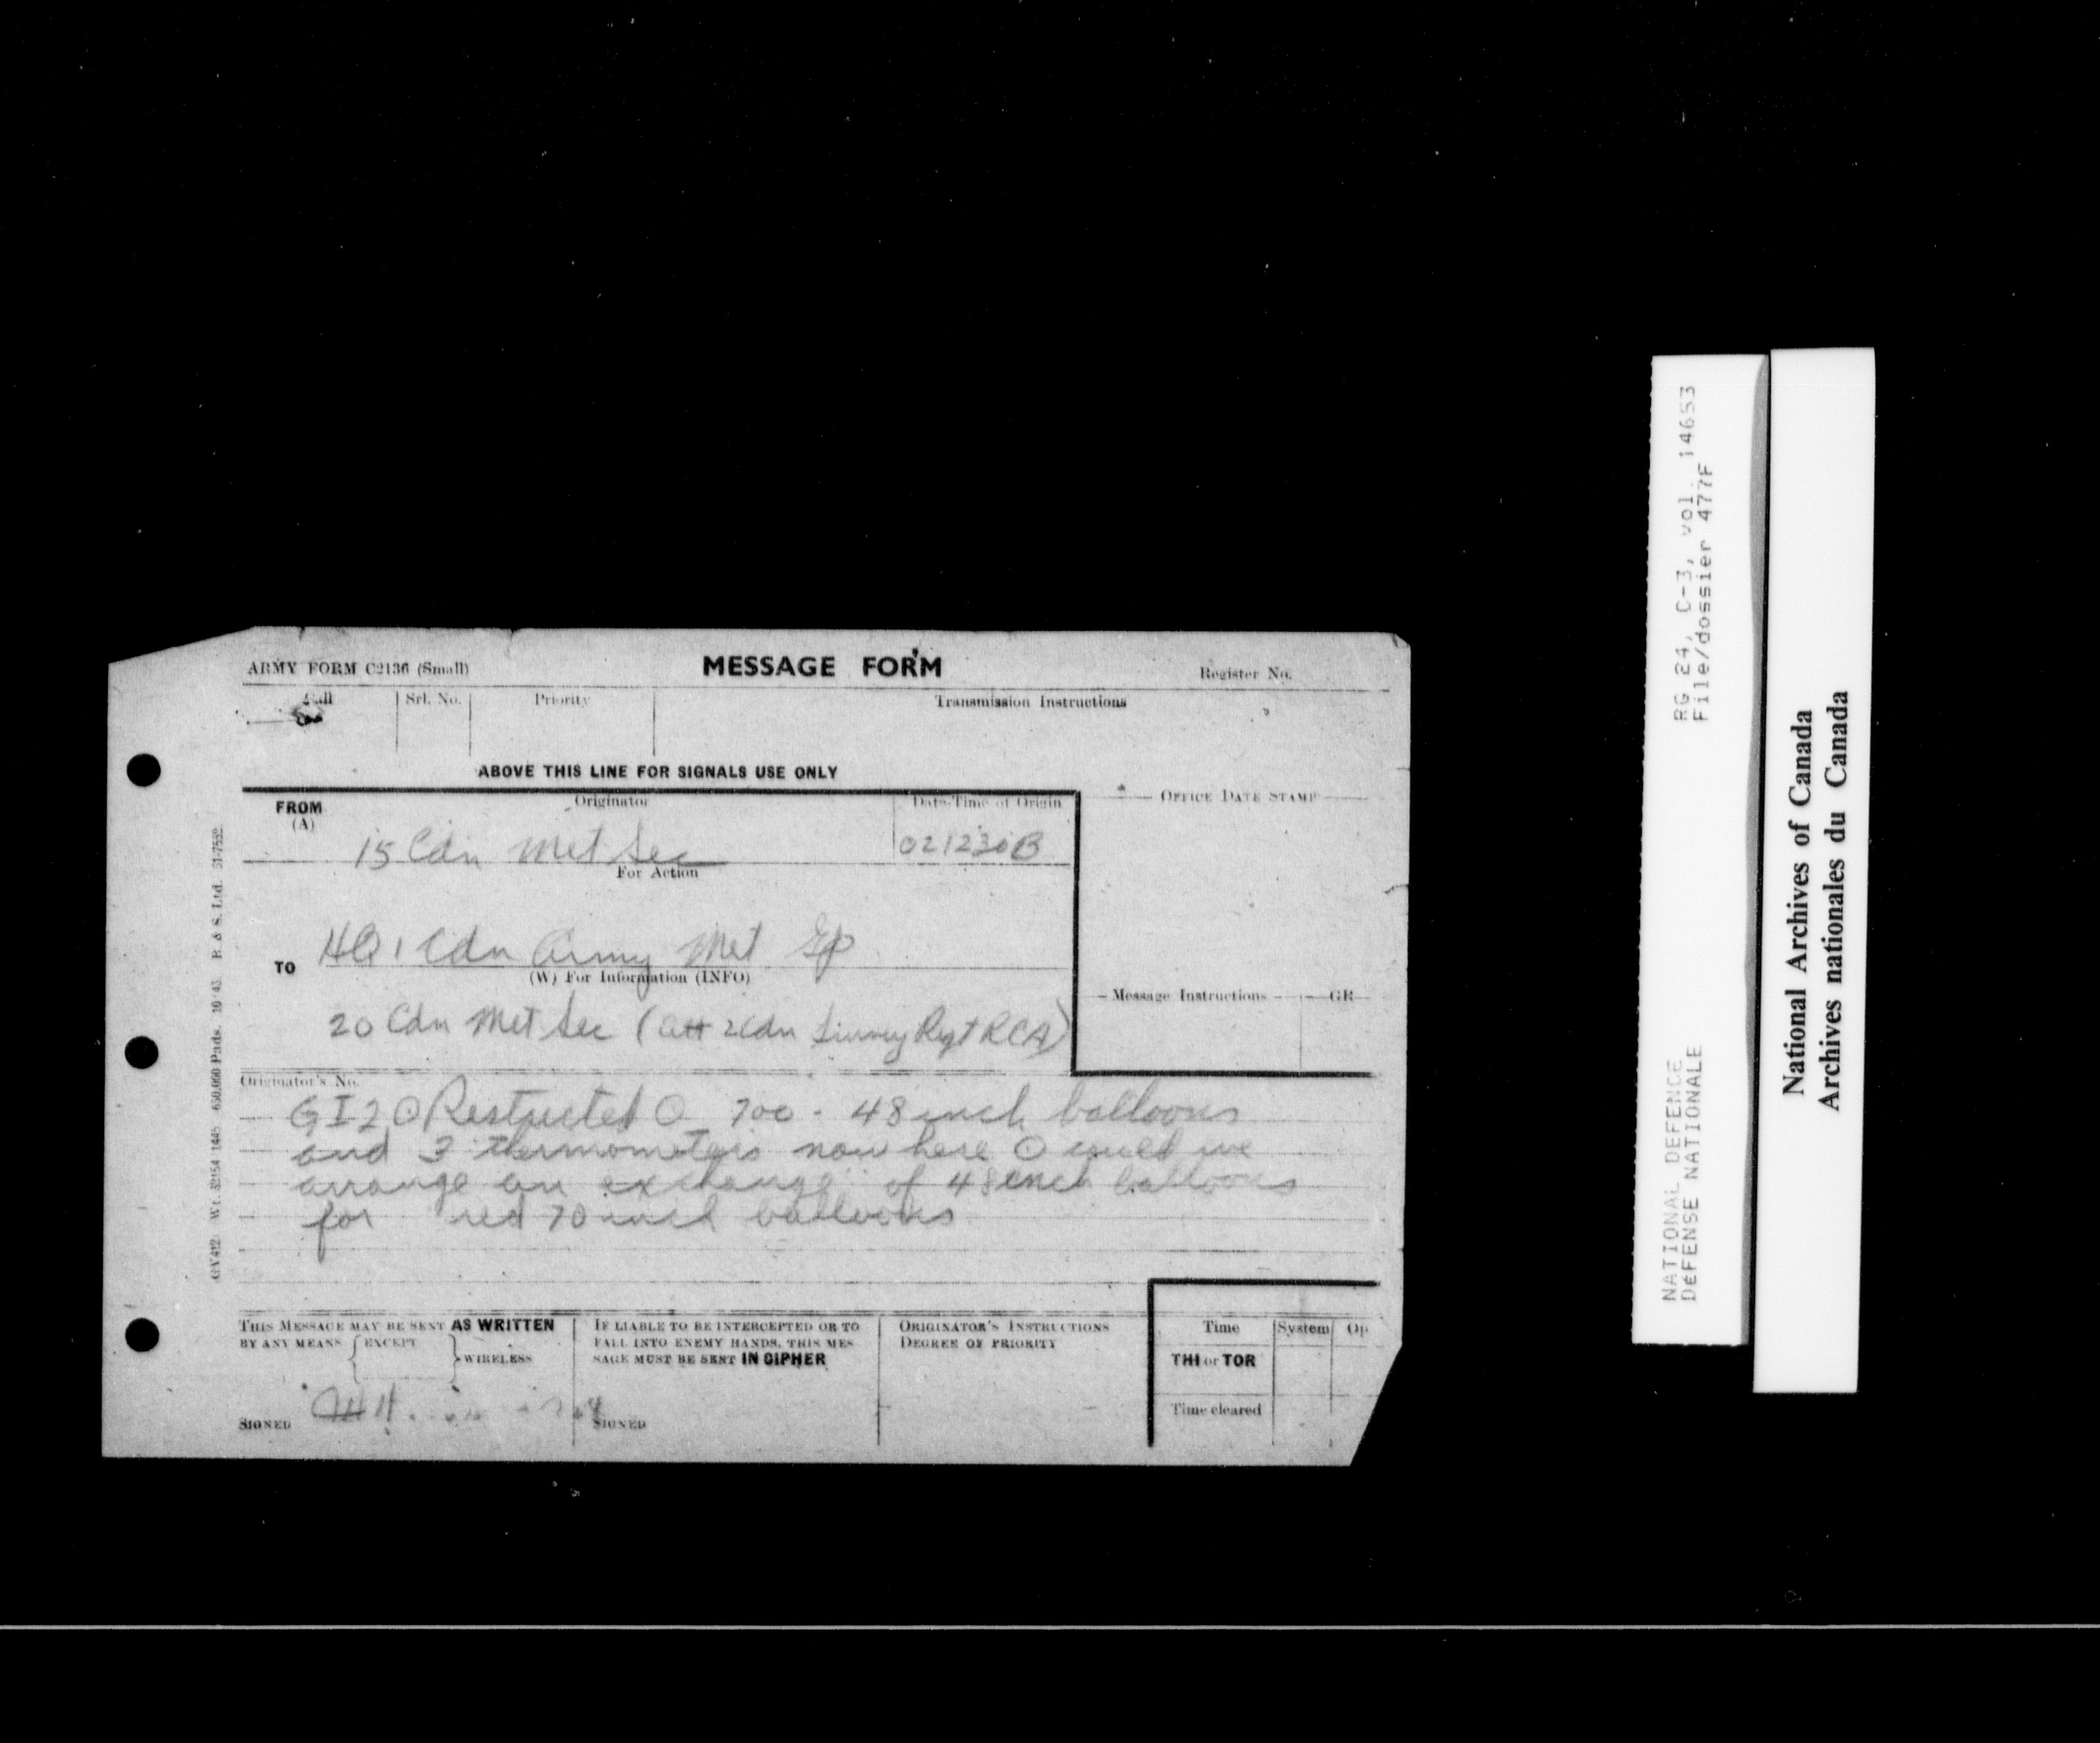 ARMY FORM C2136 (Small)
MESSAGE FORM
Register No.
Call
Srl. No.
Priority
Transmission Instructions
ABOVE THIS LINE FOR SIGNALS USE ONLY
FROM
(A)
Originator
Date-Time of Origin
OFFICE DATE STAMP
15 Cdn Met Sec
021230B
For Action
TO
HQ 1 Cdn Army Met Gp
(W) For Information (INFO)
Message Instructions
GR
20 Cdn Met Sec (att 2 Cdn Survey Regt RCA)
Originator's No.
GI2 O Restricted O 700 - 48 inch balloons
and 3 thermometers now here O could we
arrange an exchange of 48 inch balloons
for red 70 inch balloons
THIS MESSAGE MAY BE SENT AS WRITTEN
BY ANY MEANS { EXCEPT } WIRELESS
SIGNED
IF LIABLE TO BE INTERCEPTED OR TO
FALL INTO ENEMY HANDS, THIS MES-
SAGE MUST BE SENT IN CIPHER
SIGNED
ORIGINATOR'S INSTRUCTIONS
DEGREE OF PRIORITY
Time
System
Op
THI or TOR
Time cleared
10/43 B. & S. Ltd. 51-7552
RG 24, C-3, vol. 14653
File/dossier 477F
NATIONAL DEFENCE
DÉFENSE NATIONALE
National Archives of Canada
Archives nationales du Canada